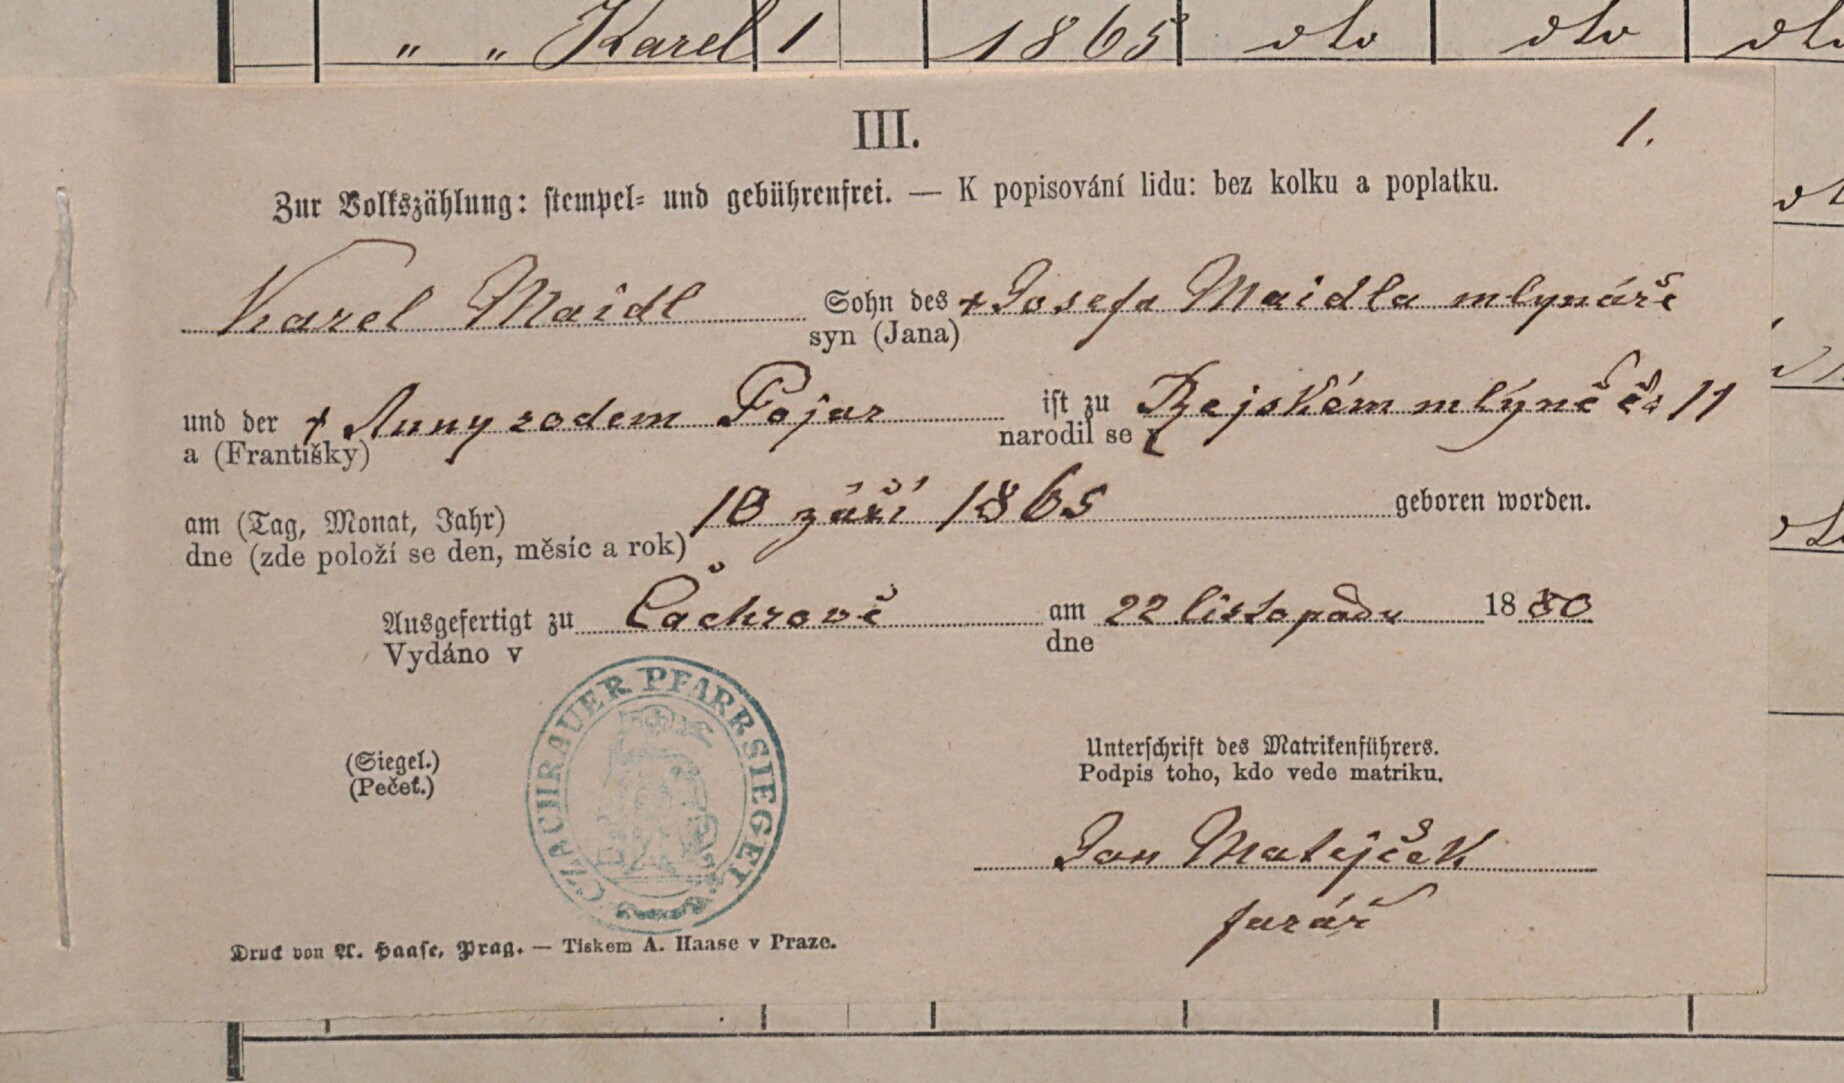 " " Karel 1 1865 dto dto dto
III. 1.
Zur Volkszählung: stempel- und gebührenfrei. — K popisování lidu: bez kolku a poplatku.
Karel Maidl Sohn des † Josefa Maidla mlynáře
syn (Jana)
und der † Anny rodem Fojar ist zu Rejském mlýně čs 11
a (Františky) narodil se v
am (Tag, Monat, Jahr) 10 září 1865 geboren worden.
dne (zde položí se den, měsíc a rok)
Ausgefertigt zu Čachrově am 22 listopadu 1880
Vydáno v dne
CZACHRAUER PFARRSIEGEL
(Siegel.)
(Pečeť.)
Unterschrift des Matrikenführers.
Podpis toho, kdo vede matriku.
Jan Matějček
farář
Druck von A. Haase, Prag. — Tiskem A. Haase v Praze.